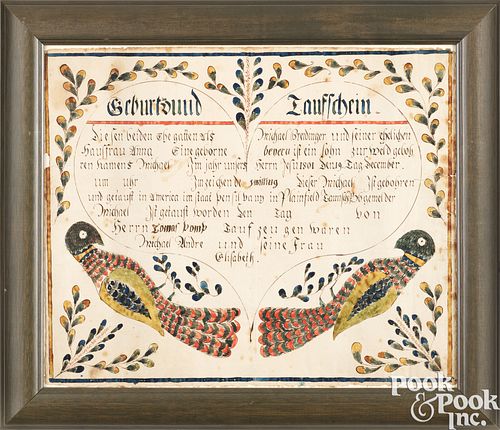 Geburts und Taufschein.
Diesen beiden Ehegatten als Michael Heidinger und seiner ehelichen
Hausfrau Anna Eine geborne ist ein Sohn zur Welt geboh
ren Namens Michael Im Jahr unsers Herrn Jesu 1801 Tag December.
um uhr Im zeichen de zwilling Dieser Michael Ist gebohren
und getauft in America im staat pensylvany in Plainfield Taunschip
Michael Ist getauft worden Den Tag von
Herrn Tomas pomp Taufzeugen waren
Michael Andre und seine Frau
Elisabeth
POOK
& POOK
INC.